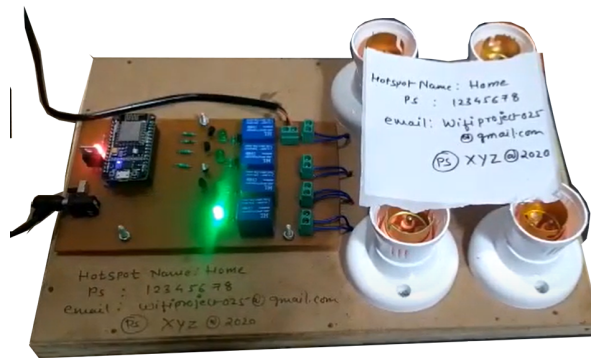 Hotspot Name: Home
Ps : 12345678
email: Wifiproject025
@gmail.com
(Ps) XYZ @2020
Hotspot Name: Home
Ps : 12345678
email: wifiproject025@gmail.com
(Ps) XYZ @2020